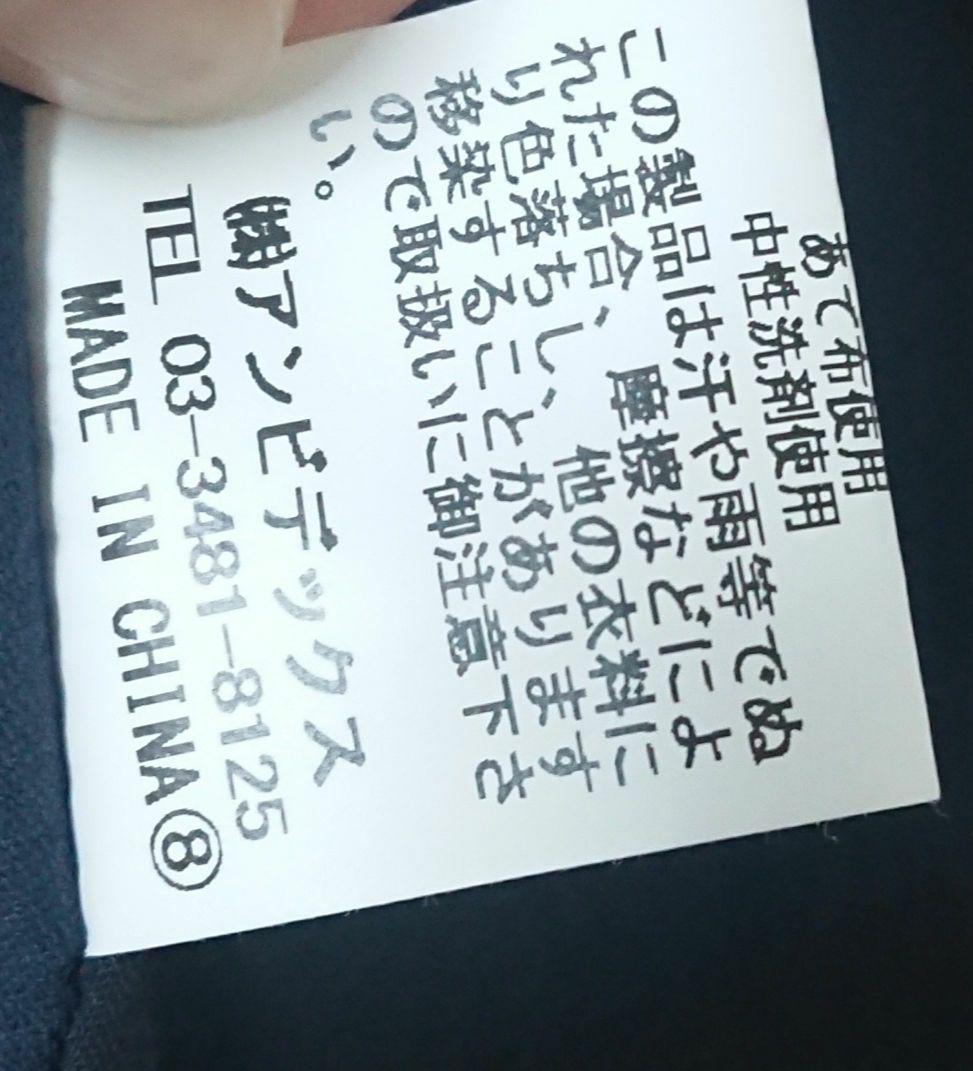 あて布使用
中性洗剤使用
この製品は汗や雨等でぬ
れた場合、摩擦などによ
り色落ちし、他の衣料に
移染することがあります
ので取扱いに御注意下さ
い。
㈱アンビデックス
TEL 03-3481-8125
MADE IN CHINA⑧